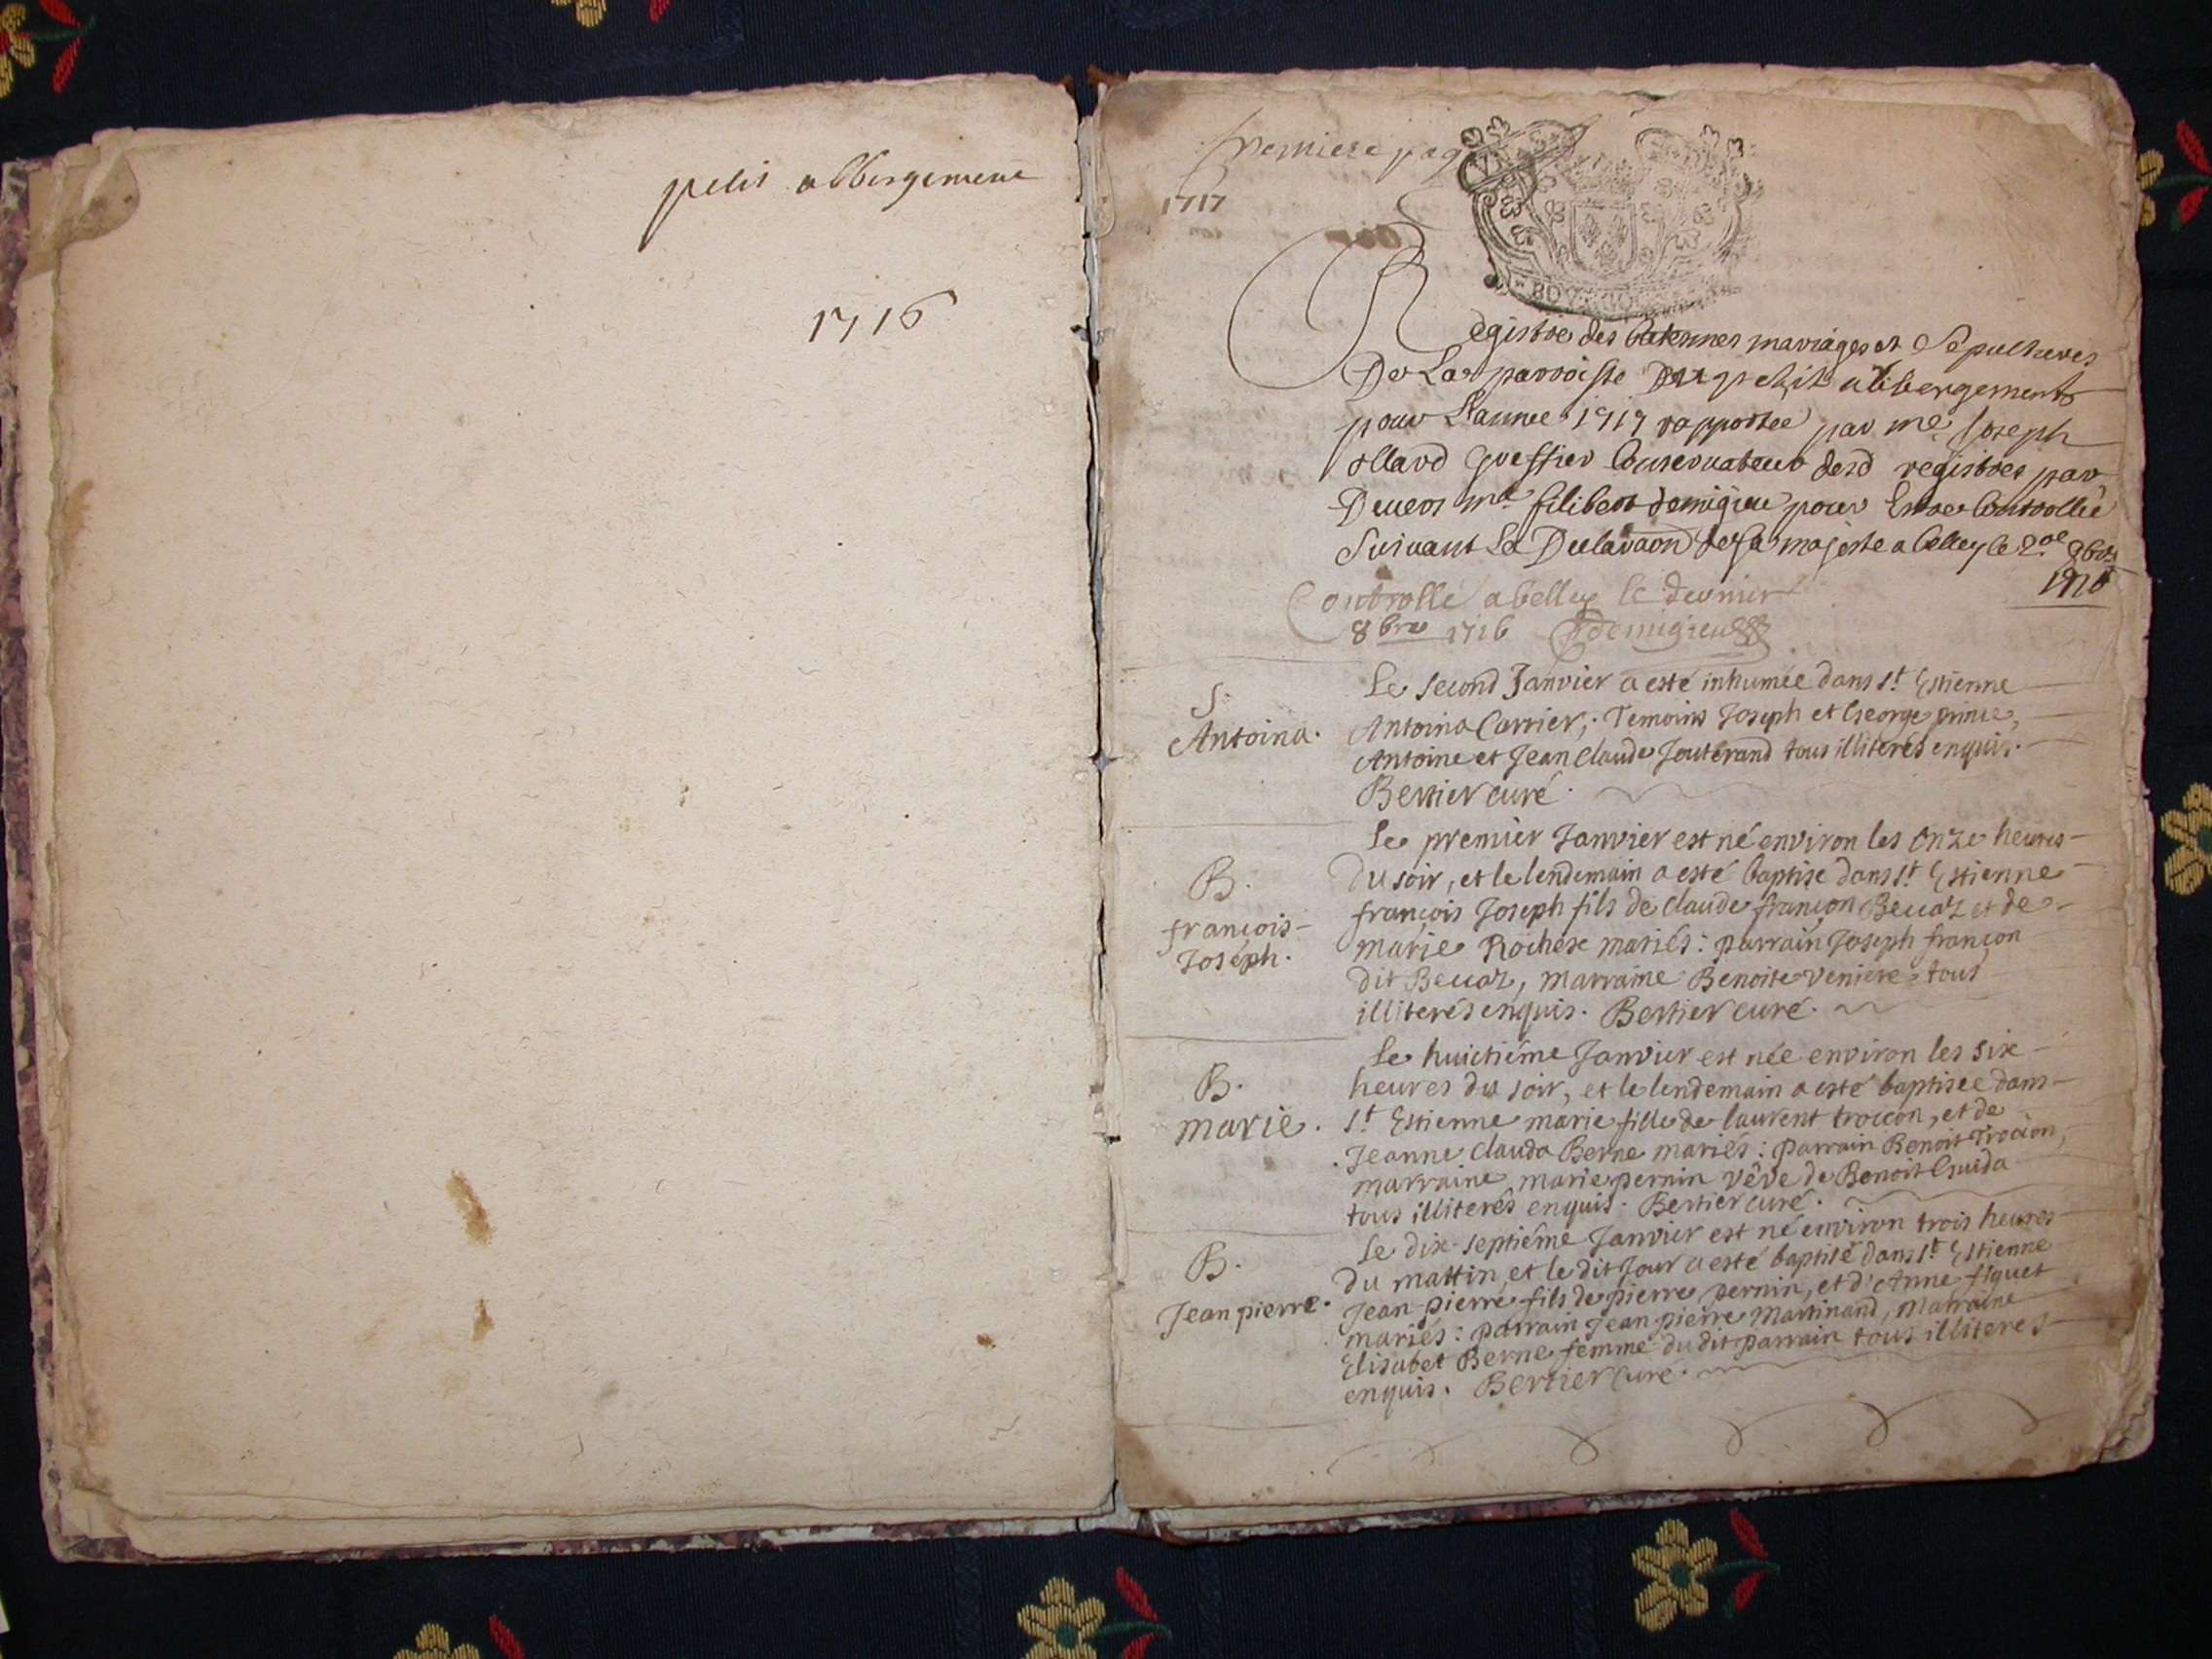 petit abbergement
1716
premiere pag
1717
Registre des batesmes mariages et Sepultures
De La parroisse Du petit abbergement
pour L'annee 1717 rapportee par me Joseph
ollard greffier Conservateur desd registres par
Devers me filibert demigieu pour Estre Controllé
Suivant La Declaraon de sa majeste a belley le
1716
Controllé a belley le dernier
8bre 1716 demigieu
S.
Antoina.
Le second Janvier a esté inhumée dans st Estienne
Antoina Carrier; Temoins Joseph et George prince,
Antoine et Jean Claude Joutérand tous illiterés enquis.
Bertier curé.
B.
françois-
Joseph.
Le premier Janvier est né environ les onze heures
du soir, et le lendemain a esté baptisé dans st Estienne
françois Joseph fils de claude françon Beuaz et de
marie Rochere mariés: parrain Joseph françon
dit Beuaz, marraine Benoite veniere tous
illiterés enquis. Bertier curé.
B.
marie.
Le huictiéme Janvier est née environ les six
heures du soir, et le lendemain a esté baptisée dans
st Estienne marie fille de laurent troccon, et de
Jeanne Clauda Berne mariés: parrain Benoit Troccon,
marraine marie pernin vêve de Benoit Guida
tous illiterés enquis. Bertier curé.
B.
Jean pierre.
Le dix-septiéme Janvier est né environ trois heures
du mattin, et le dit Jour a esté baptisé dans st Estienne
Jean-pierre fils de pierre pernin, et d'Anne fiquet
mariés: parrain Jean pierre Martinand, Marraine
Elisabet Berne femme du dit parrain tous illiteres
enquis. Bertier curé.